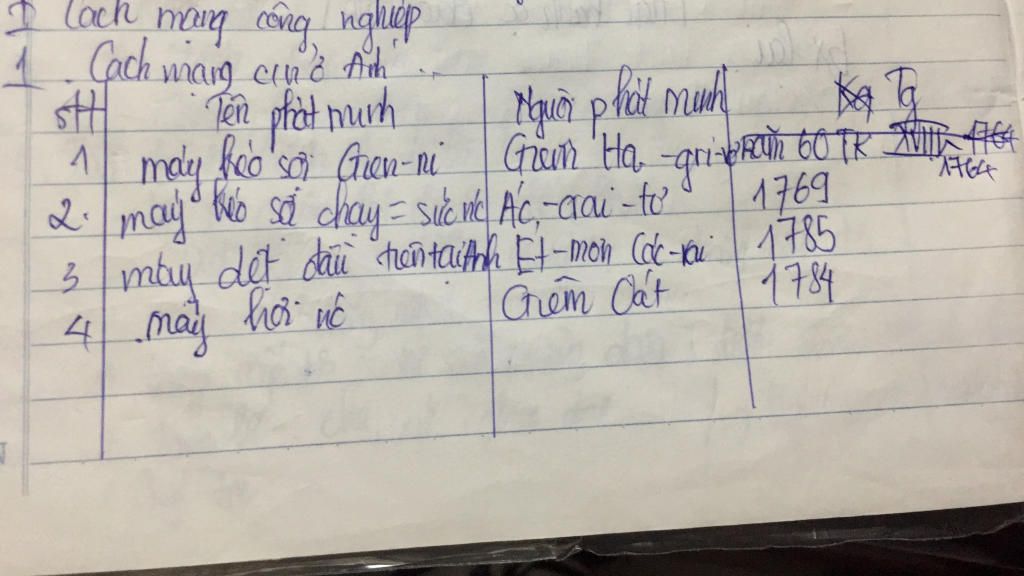 I Cách mạng công nghiệp
1. Cách mạng CN ở Anh
stt Tên phát minh Người phát minh Tg
1 máy kéo sợi Gien-ni Giem Ha-gri-v năm 60 TK XVIII 1764 1764
2. máy kéo sợi chạy = sức nc Ác-crai-tơ 1769
3 máy dệt đầu tiên tại Anh Ét-mơn Các-rai 1785
4 máy hơi nc Giêm Oát 1784